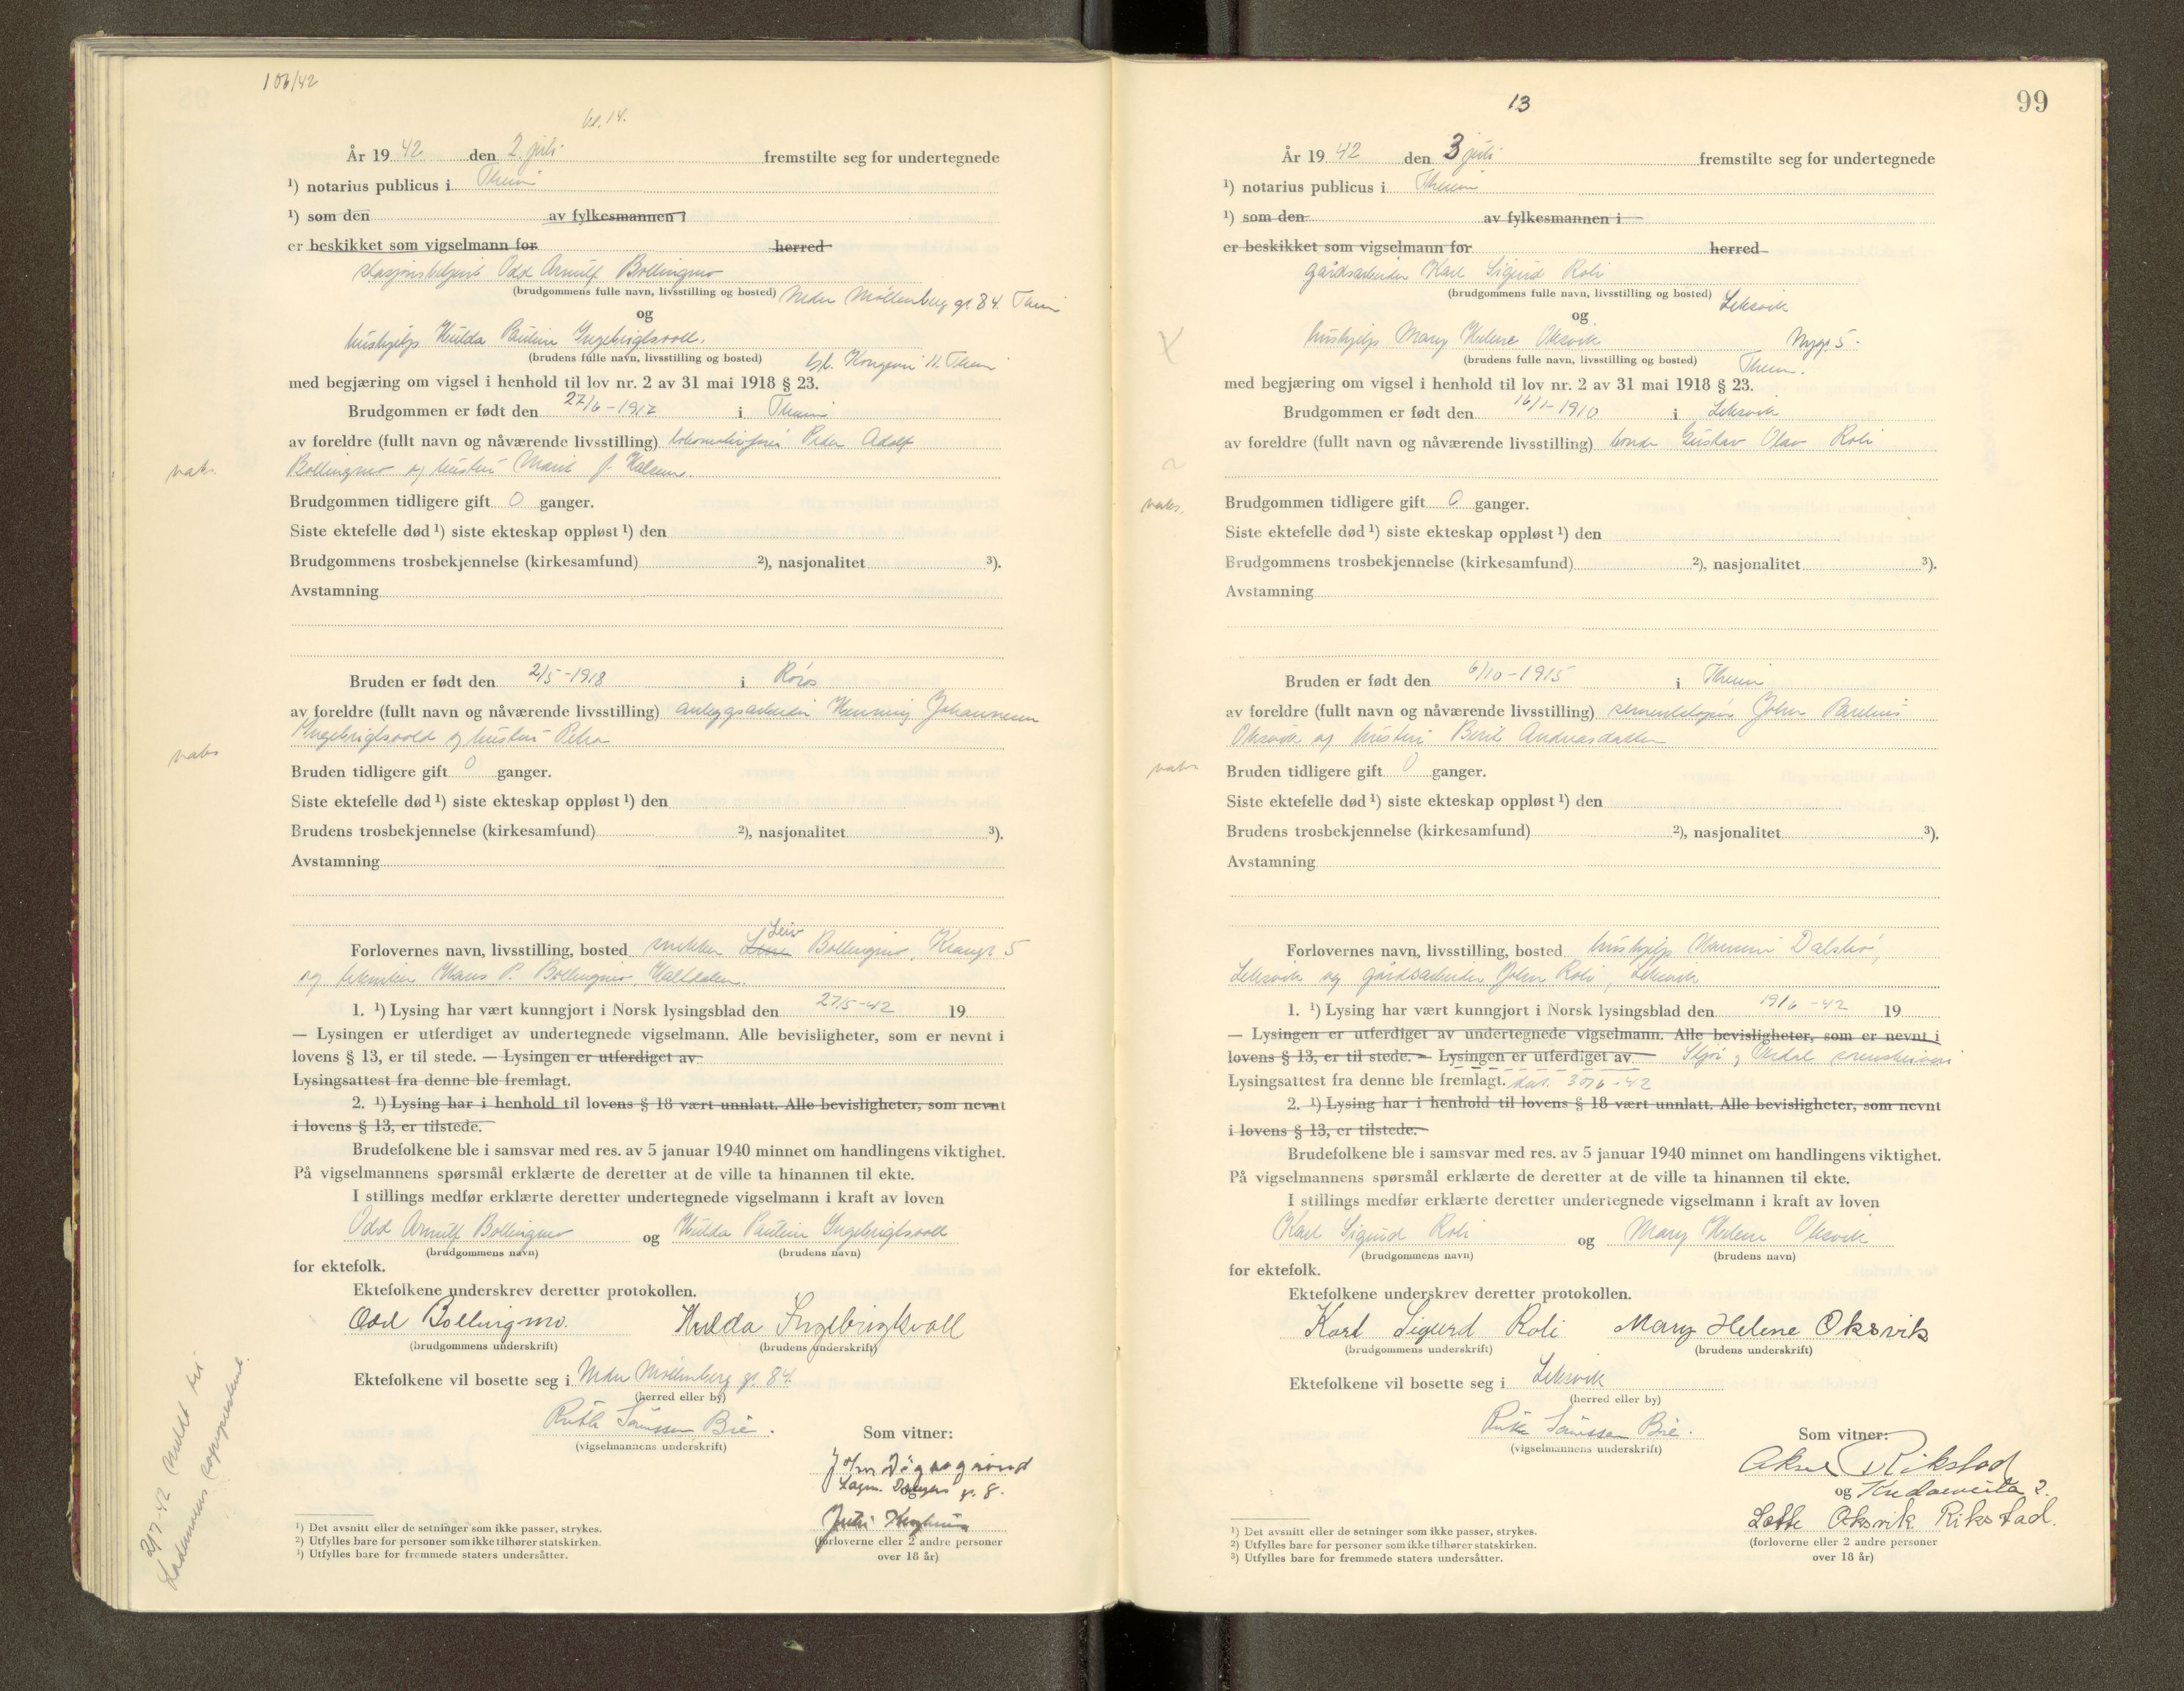 106/42
kl. 14.
År 19 42 den 2. juli fremstilte seg for undertegnede
¹) notarius publicus i Theim
¹) som den av fylkesmannen i
er beskikket som vigselmann for herred
stasjonsbetjent Odd Arnulf Bollingmo
(brudgommens fulle navn, livsstilling og bosted) Nedre Møllenberg gt 84. Theim
og
hushjelp Hulda Pauline Ingebrigtsvoll.
(brudens fulle navn, livsstilling og bosted) Kongsvn 11. Theim
med begjæring om vigsel i henhold til lov nr. 2 av 31 mai 1918 § 23.
Brudgommen er født den 27/6 - 1917 i Theim
av foreldre (fullt navn og nåværende livsstilling) lokomotivfører Peder Adolf
Bollingmo og hustru Marit J. Halsen.
vaks.
Brudgommen tidligere gift 0 ganger.
Siste ektefelle død ¹) siste ekteskap oppløst ¹) den
Brudgommens trosbekjennelse (kirkesamfund) ²), nasjonalitet ³).
Avstamning
Bruden er født den 2/5 - 1918 i Røros
av foreldre (fullt navn og nåværende livsstilling) anleggsarbeider Henning Johannesen
Ingebrigtsvold og hustru Petra
vaks
Bruden tidligere gift 0 ganger.
Siste ektefelle død ¹) siste ekteskap oppløst ¹) den
Brudens trosbekjennelse (kirkesamfund) ²), nasjonalitet ³).
Avstamning
Leiv
Forlovernes navn, livsstilling, bosted snekker Bollingmo, Krambgt 5
og tekniker Hans P. Bollingmo, Haltdalen.
1. ¹) Lysing har vært kunngjort i Norsk lysingsblad den 27/5 - 42 19
— Lysingen er utferdiget av undertegnede vigselmann. Alle bevisligheter, som er nevnt i
lovens § 13, er til stede. — Lysingen er utferdiget av
Lysingsattest fra denne ble fremlagt.
2. ¹) Lysing har i henhold til lovens § 18 vært unnlatt. Alle bevisligheter, som nevnt
i lovens § 13, er tilstede.
Brudefolkene ble i samsvar med res. av 5 januar 1940 minnet om handlingens viktighet.
På vigselmannens spørsmål erklærte de deretter at de ville ta hinannen til ekte.
I stillings medfør erklærte deretter undertegnede vigselmann i kraft av loven
Odd Arnulf Bollingmo og Hulda Pauline Ingebrigtsvoll
(brudgommens navn) (brudens navn)
for ektefolk.
Ektefolkene underskrev deretter protokollen.
Odd Bollingmo. Hulda Ingebrigtsvoll
(brudgommens underskrift) (brudens underskrift)
Ektefolkene vil bosette seg i Nedre Møllenberg gt. 84.
(herred eller by)
Ruth Sørnssen Bie.
(vigselmannens underskrift)
Som vitner:
John
Lagm. gt. 8.
(forloverne eller 2 andre personer
over 18 år)
2/7-42 meldt til
Lademoens sogneprestemb.
¹) Det avsnitt eller de setninger som ikke passer, strykes.
²) Utfylles bare for personer som ikke tilhører statskirken.
³) Utfylles bare for fremmede staters undersåtter.
13
99
År 19 42 den 3 juli fremstilte seg for undertegnede
¹) notarius publicus i Theim
¹) som den av fylkesmannen i
er beskikket som vigselmann for herred
gårdsarbeider Karl Sigurd Roli
(brudgommens fulle navn, livsstilling og bosted) Leksvik
og
hushjelp Mary Helene Oksvik Nygt 5
(brudens fulle navn, livsstilling og bosted) Theim.
med begjæring om vigsel i henhold til lov nr. 2 av 31 mai 1918 § 23.
Brudgommen er født den 16/1 - 1910 i Leksvik
av foreldre (fullt navn og nåværende livsstilling) bonde Gustav Olav Roli
vaks.
Brudgommen tidligere gift 0 ganger.
Siste ektefelle død ¹) siste ekteskap oppløst ¹) den
Brudgommens trosbekjennelse (kirkesamfund) ²), nasjonalitet ³).
Avstamning
Bruden er født den 6/10 - 1915 i Theim
av foreldre (fullt navn og nåværende livsstilling) sementstøper John Parelius
Oksvik og hustru Berit Andreasdatter
vaks
Bruden tidligere gift 0 ganger.
Siste ektefelle død ¹) siste ekteskap oppløst ¹) den
Brudens trosbekjennelse (kirkesamfund) ²), nasjonalitet ³).
Avstamning
Forlovernes navn, livsstilling, bosted hushjelp Dalsbø,
Leksvik og gårdsarbeider John Roli, Leksvik
1. ¹) Lysing har vært kunngjort i Norsk lysingsblad den 19/6 - 42 19
— Lysingen er utferdiget av undertegnede vigselmann. Alle bevisligheter, som er nevnt i
lovens § 13, er til stede. — Lysingen er utferdiget av Stjør og Verdal sorenskriveri
Lysingsattest fra denne ble fremlagt. dat. 30/6 - 42
2. ¹) Lysing har i henhold til lovens § 18 vært unnlatt. Alle bevisligheter, som nevnt
i lovens § 13, er tilstede.
Brudefolkene ble i samsvar med res. av 5 januar 1940 minnet om handlingens viktighet.
På vigselmannens spørsmål erklærte de deretter at de ville ta hinannen til ekte.
I stillings medfør erklærte deretter undertegnede vigselmann i kraft av loven
Karl Sigurd Roli og Mary Helene Oksvik
(brudgommens navn) (brudens navn)
for ektefolk.
Ektefolkene underskrev deretter protokollen.
Karl Sigurd Roli Mary Helene Oksvik
(brudgommens underskrift) (brudens underskrift)
Ektefolkene vil bosette seg i Leksvik
(herred eller by)
Ruth Sørnssen Bie.
(vigselmannens underskrift)
Som vitner:
Aksel Rikstad
og 2.
Lotte Oksvik Rikstad.
(forloverne eller 2 andre personer
over 18 år)
¹) Det avsnitt eller de setninger som ikke passer, strykes.
²) Utfylles bare for personer som ikke tilhører statskirken.
³) Utfylles bare for fremmede staters undersåtter.